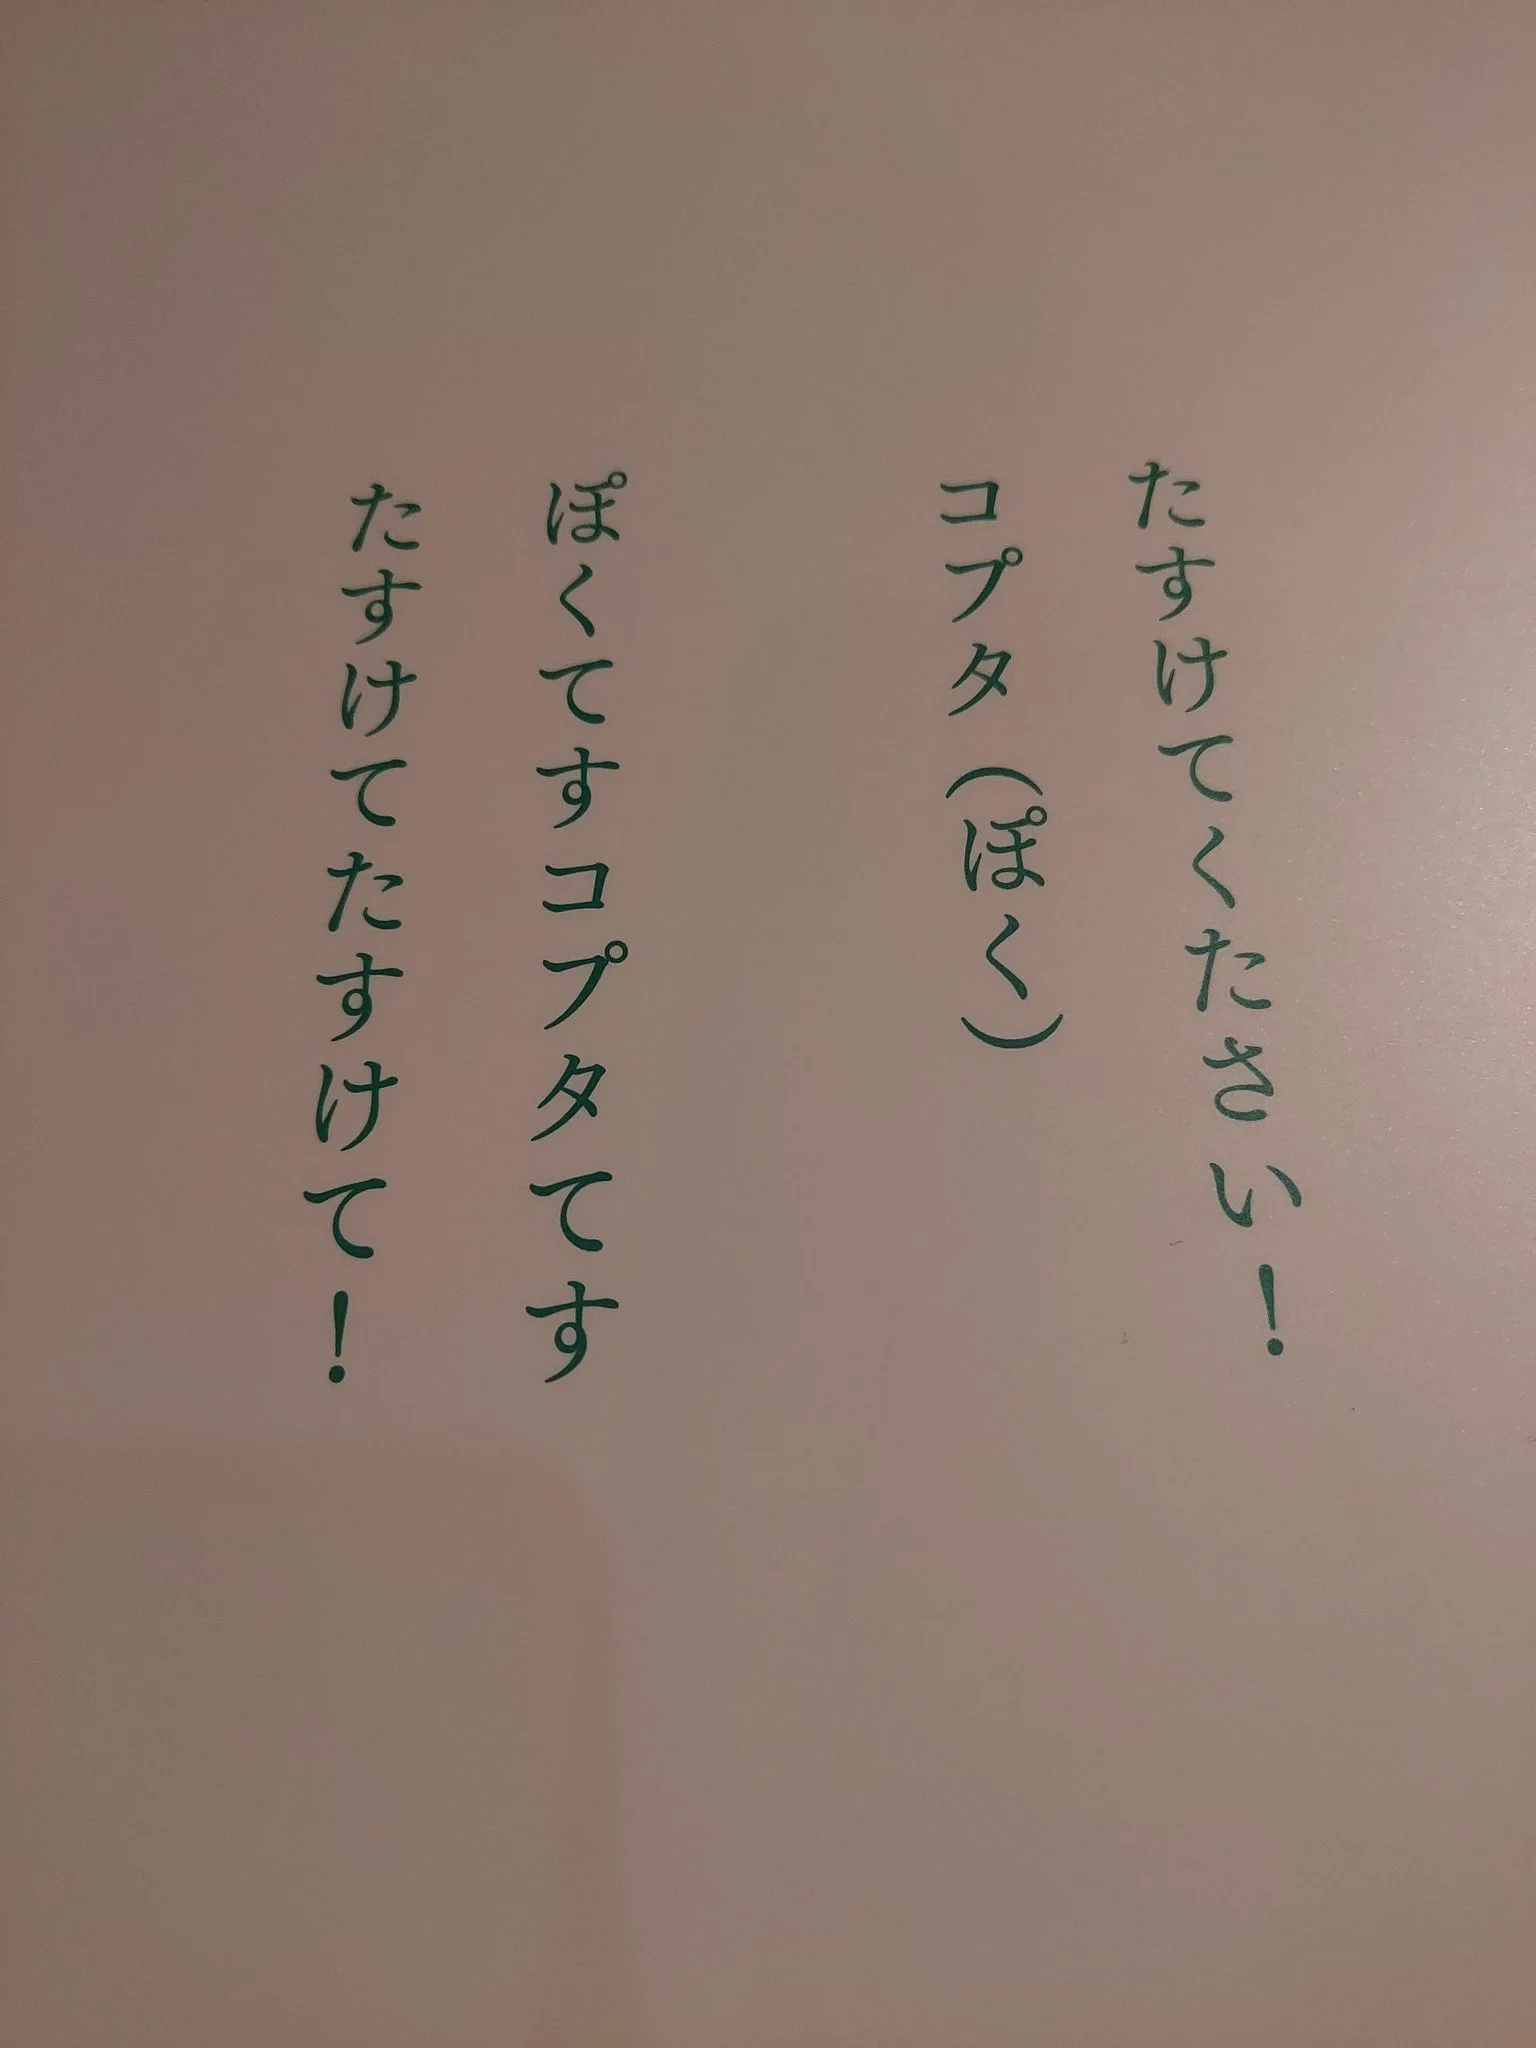 たすけてくたさい!
コプタ(ぽく)
ぽくてすコプタてす
たすけてたすけて!